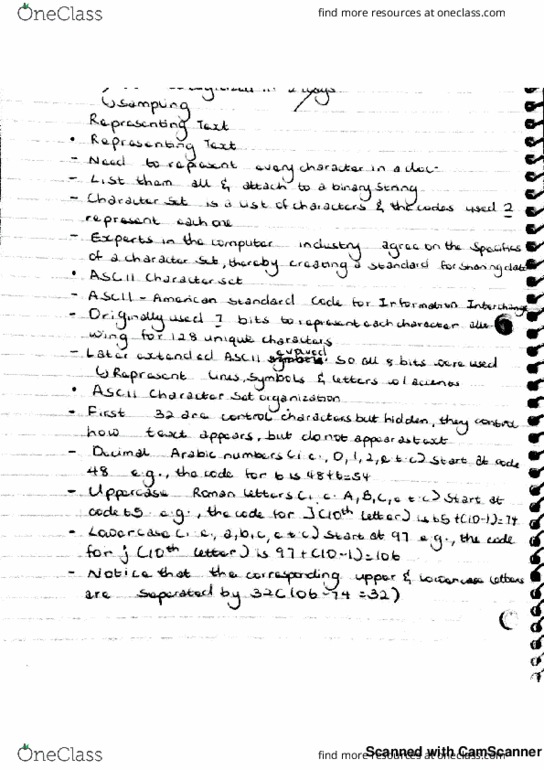 OneClass
find more resources at oneclass.com
in 2 ways
↳ Sampling
Representing Text
• Representing Text
- Need to represent every character in a doc.
- List them all & attach to a binary string
- Character set is a list of characters & the codes used 2
represent each one
- Experts in the computer industry agree on the specifics
of a character set, thereby creating a standard for sharing data
• ASCII Character set
- ASCII - American Standard Code for Information Interchange
- Originally used 7 bits to represent each character allo
wing for 128 unique characters
- Later extended ASCII evolved so all 8 bits were used
↳ Represent lines, symbols & letters w/ accents
• ASCII Character Set organization
- First 32 are control characters but hidden, they control
how text appears, but do not appear as text
- Decimal Arabic numbers (i.e., 0, 1, 2, etc) start at code
48 e.g., the code for 6 is 48+6=54
- Uppercase Roman letters (i.e. A, B, C, etc) start at
code 65 e.g., the code for J (10th letter) is 65+(10-1)=74
- Lowercase (i.e., a, b, c, etc) start at 97 e.g., the code
for j (10th letter) is 97+(10-1)=106
- Notice that the corresponding upper & lowercase letters
are seperated by 32 (106-74=32)
Scanned with CamScanner
OneClass
find more resources at oneclass.com